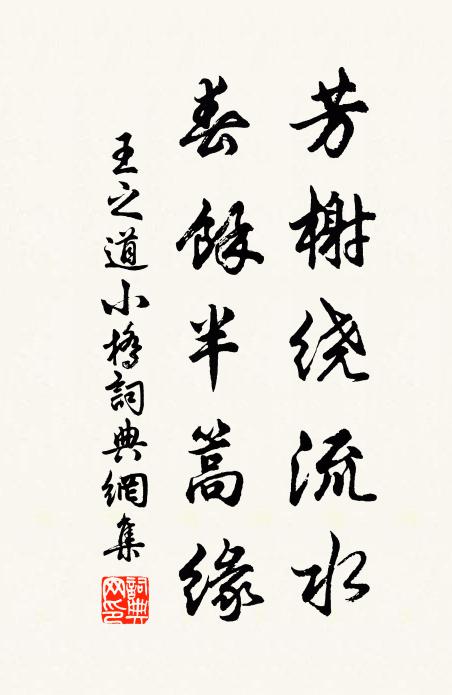 芳榭绕流水
春餘半篙缘
王之道小橋詞典網集
詞典网印